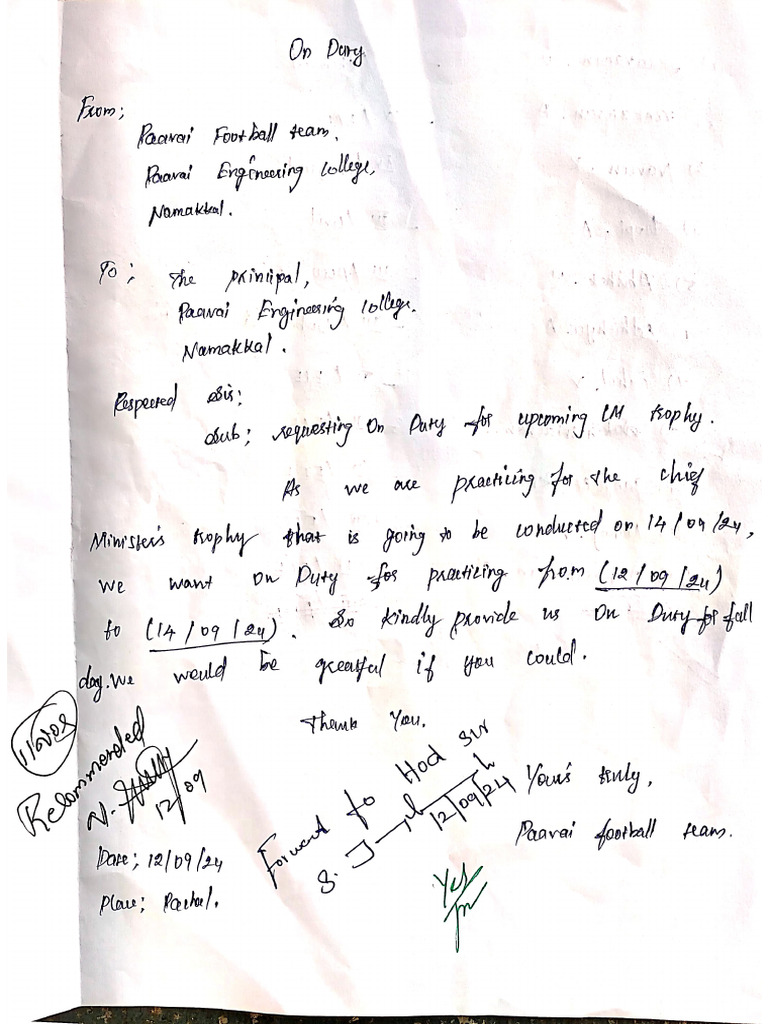 On Duty
From;
Paavai Football team.
Paavai Engineering College,
Namakkal.
To;
The principal,
Paavai Engineering College.
Namakkal.
Respected Sir;
Sub; requesting On Duty for upcoming CM trophy.
As we are practicing for the chief
Minister's trophy that is going to be conducted on 14/09/24,
we want on Duty for practicing from (12/09/24)
to (14/09/24). So kindly provide us On Duty for full
day. We would be greatful if you could.
Thank You.
Recommended
N.
12/09
Forward to Hod sir
S. J
12/09/24
Your's truly,
Paavai football team.
Date; 12/09/24
Place; Pachal.
Yes